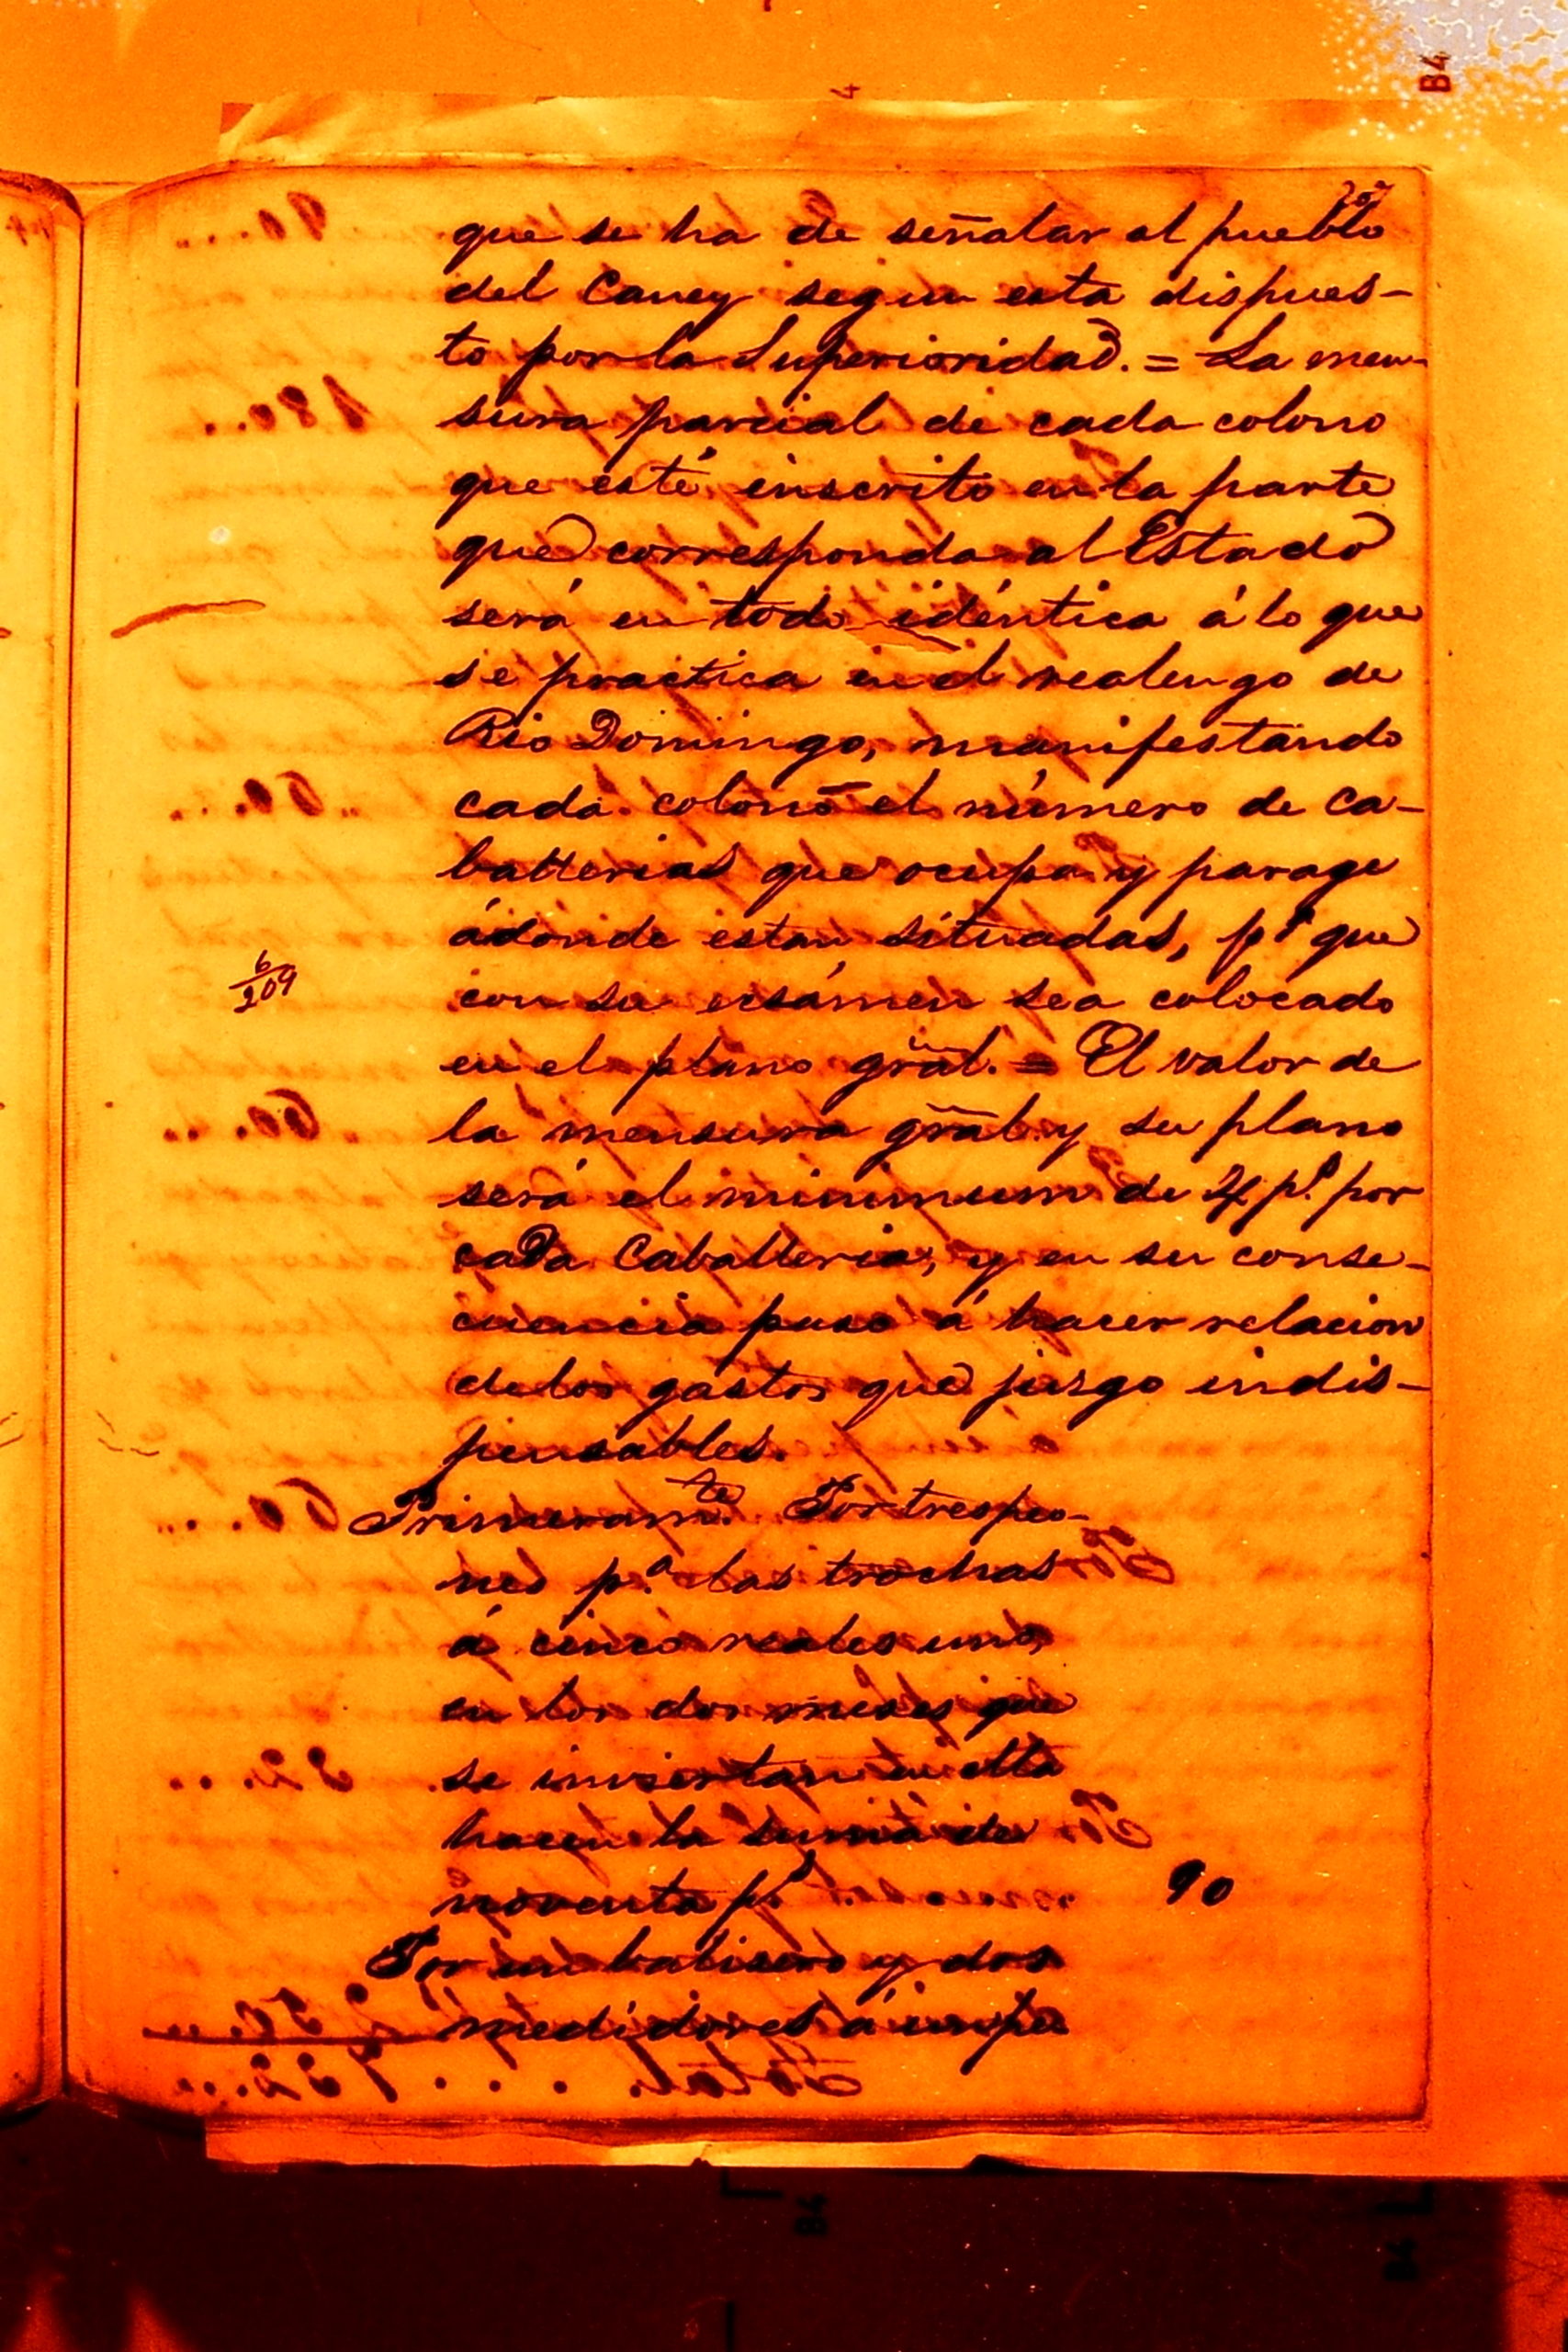 que se ha de señalar al pueblo
del Caney segun esta dispues-
to por la Superioridad. = La men-
sura parcial de cada colono
que esté inscrito en la parte
que corresponda al Estado
será en todo idéntica á lo que
se practica en el realengo de
Rio Domingo, manifestando
cada colono el número de ca-
ballerias que ocupa y parage
ádonde estan situadas, pª que
con su ecsámen sea colocado
en el plano gral. = El valor de
la mensura gral. y su plano
será el minimum de 4 p.s por
cada Caballeria, y en su conse-
cuencia paso á hacer relacion
de los gastos que jusgo indis-
pensables.
Primeram.te Por tres peo-
nes p.a las trochas
á cinco reales uno,
en los dos meses que
se inviertan en ella
hacen la suma de
noventa p.s 90
Por un balisero y dos
medidores á un pe
6/209
B4